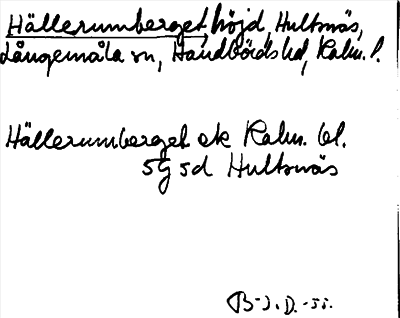 Hällerumberget, höjd, Hultsnäs,
Långemåla sn, Handbörds hd, Kalm. l.
Hällerumberget ek Kalm. bl.
5g sd Hultsnäs
B-J.D. -55.